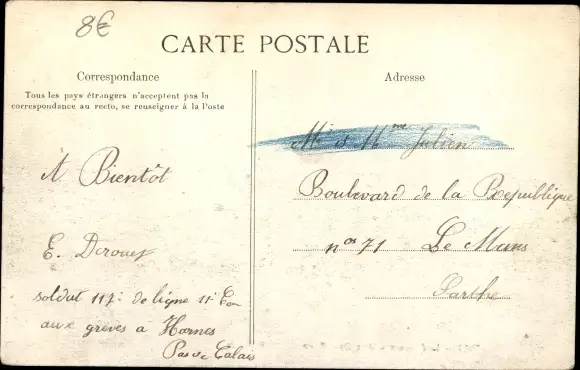 8€
CARTE POSTALE
Correspondance
Tous les pays étrangers n'acceptent pas la
correspondance au recto, se renseigner à la Poste
À Bientôt
E. Derouet
soldat 117e de ligne 11e Cie
aux grèves a Harnes
Pas de Calais
Adresse
Mr et Mme Julien
Boulevard de la Republique
nos 71 Le Mans
Sarthe